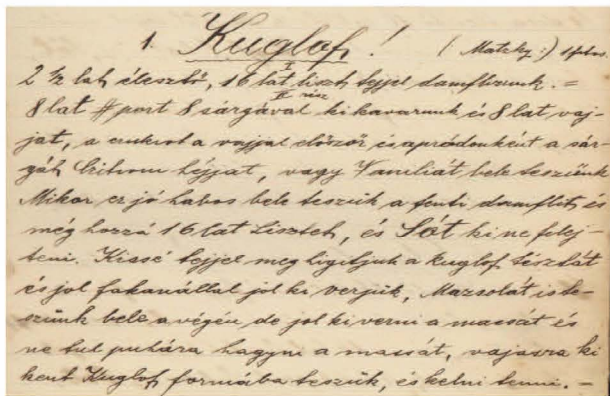 1. Kuglof! (Matzky:)
2 ½ lat élesztő, 16 lat liszt tejjel damflizunk. =
I
II rész
8 lat port 8 sárgával kikavarunk és 8 lat vaj-
jat, a cukrot a vajjal először és apródonként a sár-
gát Citrom héjjat, vagy Vaniliát bele teszünk
Mikor ez jó habos bele teszük a fenti damflit, és
még hozzá 16 lat Lisztet, és Sót ki ne felej-
teni. Kissé tejjel meg ligitjuk a kuglof tésztát
és jol fakanállal jol ki verjük, Mazsolát is te-
szünk bele a végén de jol ki verni a massát és
ne tul puhára hagyni a massát, vajasra ki
kent Kuglof formába teszük, és kelni tenni. =